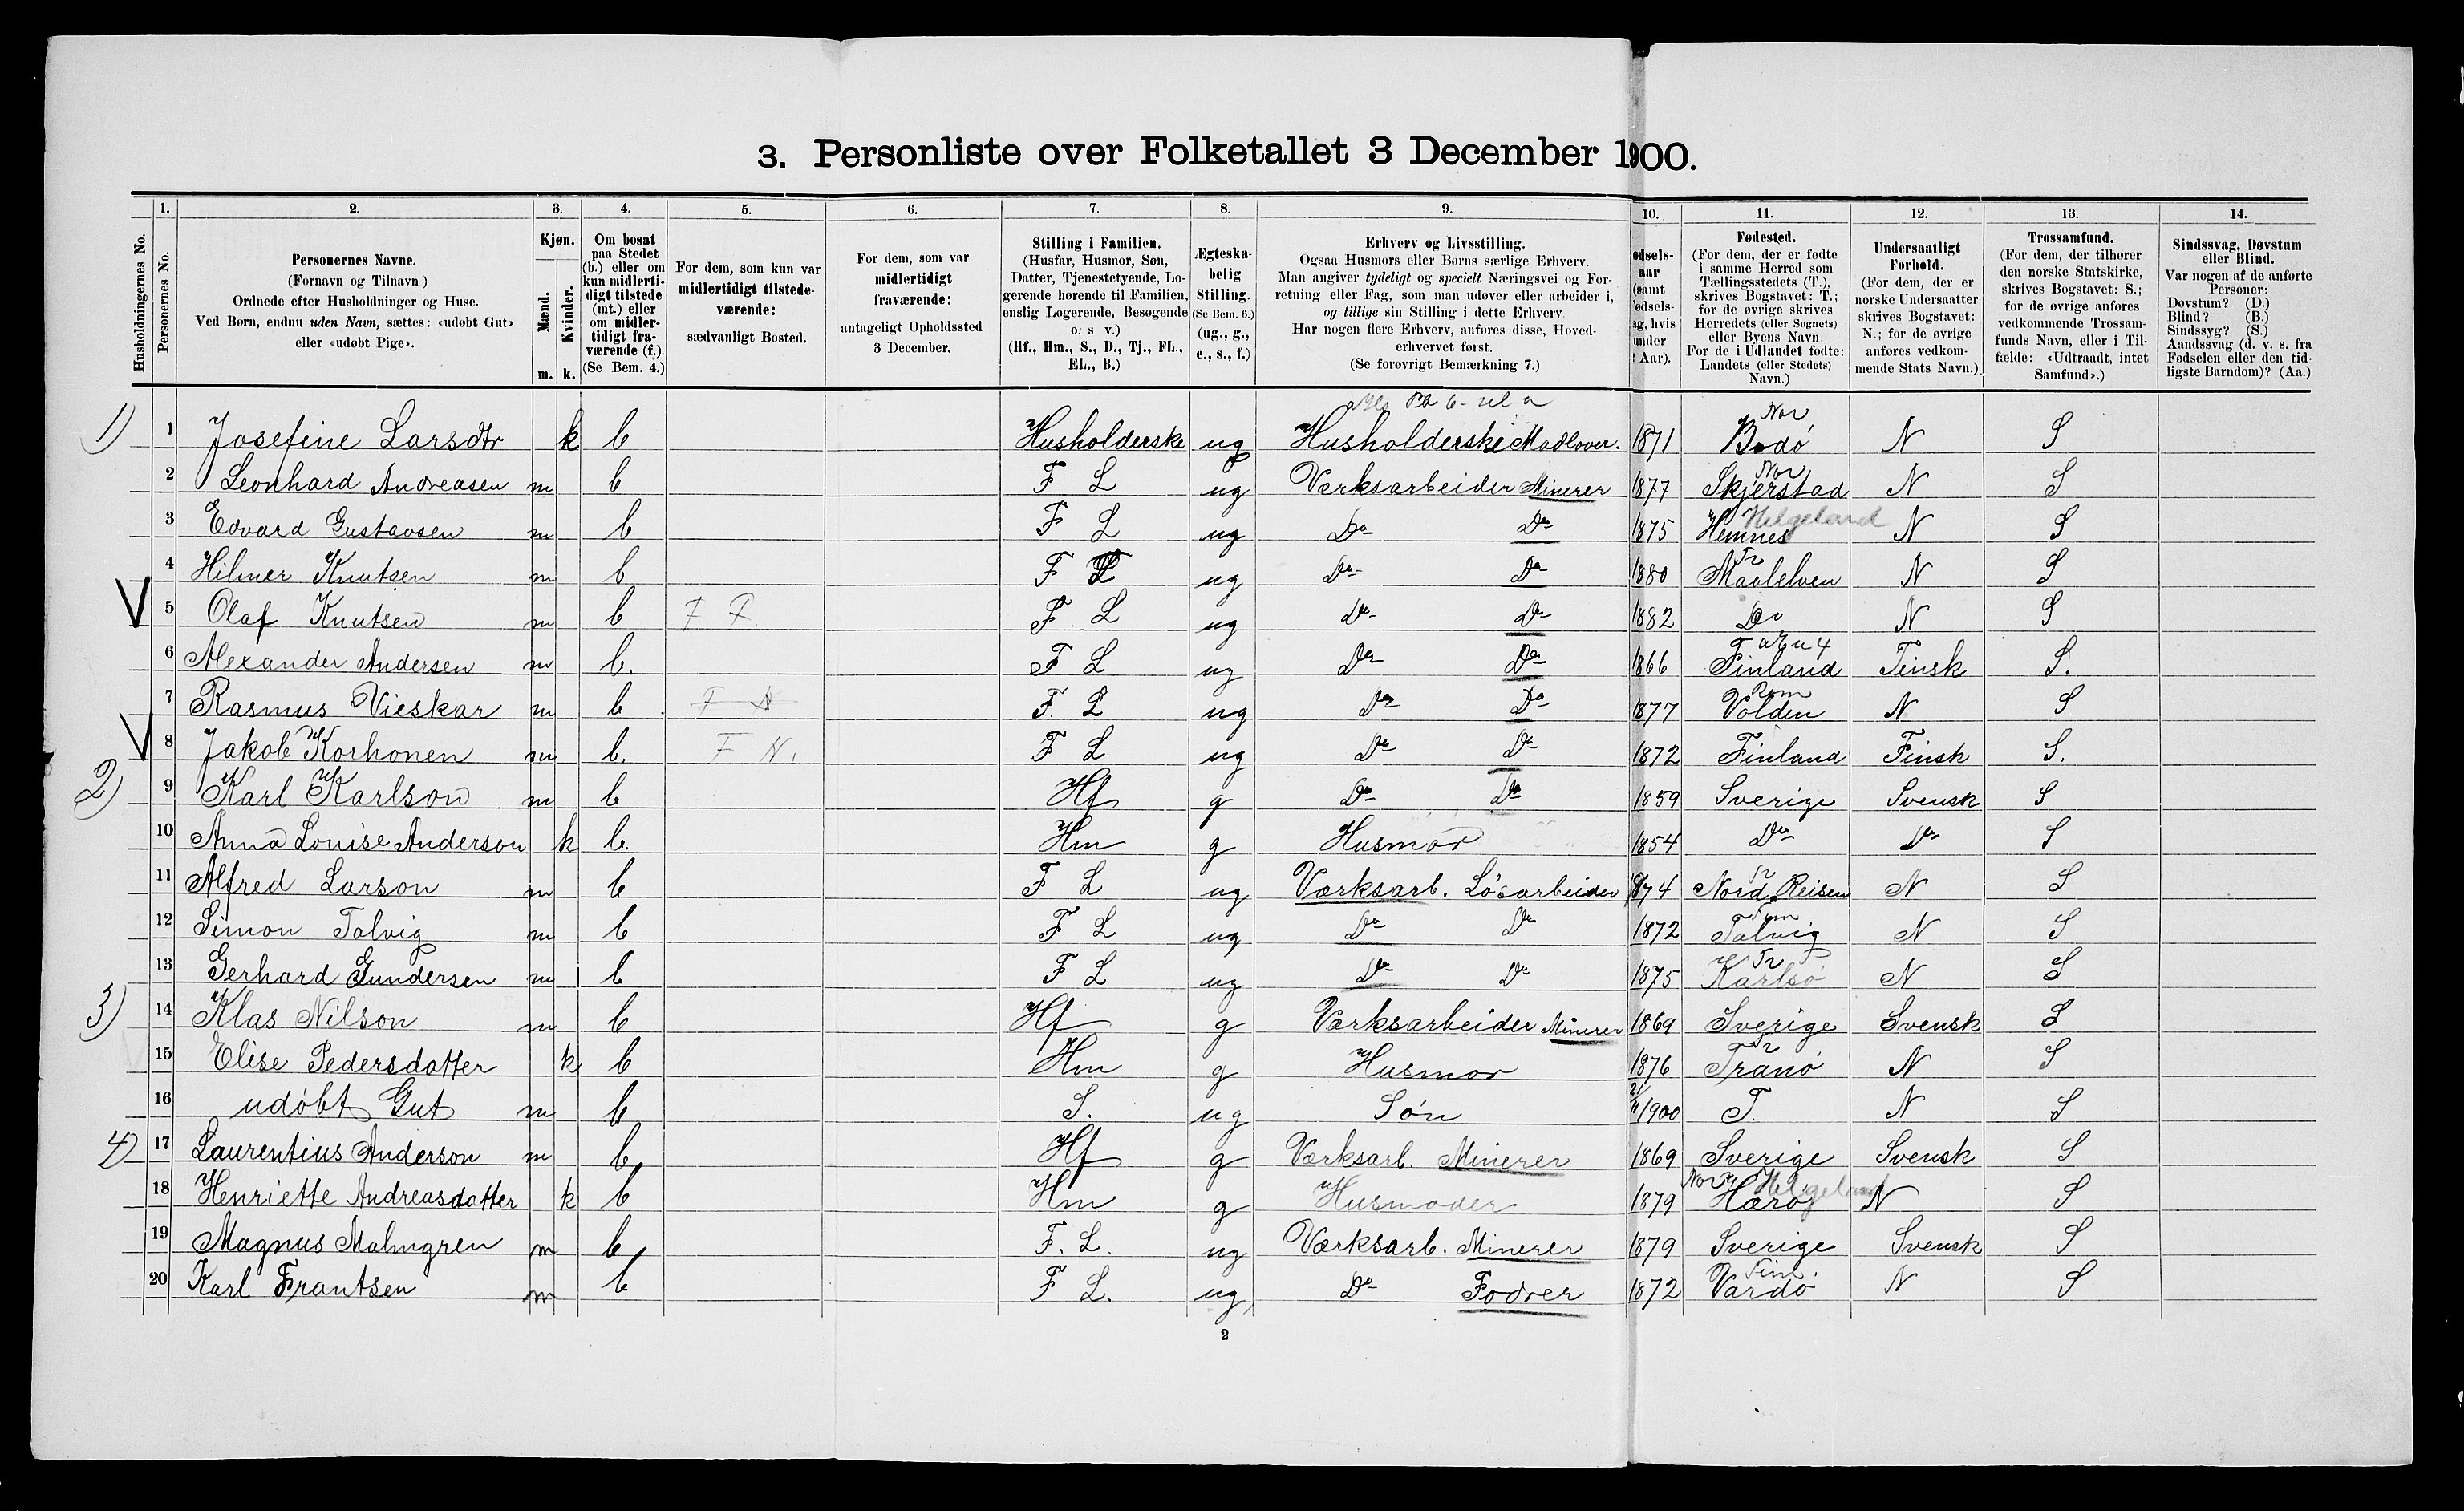 3. Personliste over Folketallet 3 December 1900.
Husholdningernes No.
1. Personernes No.
2. Personernes Navne.
(Fornavn og Tilnavn)
Ordnede efter Husholdninger og Huse.
Ved Børn, endnu uden Navn, sættes: «udøbt Gut»
eller «udøbt Pige».
3. Kjøn.
Mænd. m.
Kvinder. k.
4. Om bosat
paa Stedet
(b.) eller om
kun midlerti-
digt tilstede
(mt.) eller
om midler-
tidigt fra-
værende (f.).
(Se Bem. 4.)
5. For dem, som kun var
midlertidigt tilstede-
værende:
sædvanligt Bosted.
6. For dem, som var
midlertidigt
fraværende:
antageligt Opholdssted
3 December.
7. Stilling i Familien.
(Husfar, Husmor, Søn,
Datter, Tjenestetyende, Lo-
gerende hørende til Familien,
enslig Logerende, Besøgende
o. s v.)
(Hf., Hm., S., D., Tj., FL.,
EL., B.)
8. Ægteska-
belig
Stilling.
(Se Bem. 6.)
(ug., g.,
e., s., f.)
9. Erhverv og Livsstilling.
Ogsaa Husmors eller Børns særlige Erhverv.
Man angiver tydeligt og specielt Næringsvei og For-
retning eller Fag, som man udøver eller arbeider i,
og tillige sin Stilling i dette Erhverv.
Har nogen flere Erhverv, anføres disse, Hoved-
erhvervet først.
(Se forøvrigt Bemærkning 7.)
10. ødsels-
aar
(samt
ødsels-
ag, hvis
under
Aar).
11. Fødested.
(For dem, der er fødte
i samme Herred som
Tællingsstedets (T.),
skrives Bogstavet: T.;
for de øvrige skrives
Herredets (eller Sognets)
eller Byens Navn.
For de i Udlandet fødte:
Landets (eller Stedets)
Navn.)
12. Undersaatligt
Forhold.
(For dem, der er
norske Undersaatter
skrives Bogstavet:
N.; for de øvrige
anføres vedkom-
mende Stats Navn.)
13. Trossamfund.
(For dem, der tilhører
den norske Statskirke,
skrives Bogstavet: S.;
for de øvrige anføres
vedkommende Trossam-
funds Navn, eller i Til-
fælde: «Udtraadt, intet
Samfund».)
14. Sindssvag, Døvstum
eller Blind.
Var nogen af de anførte
Personer:
Døvstum? (D.)
Blind? (B.)
Sindssyg? (S.)
Aandssvag (d. v. s. fra
Fødselen eller den tid-
ligste Barndom)? (Aa.)
1) 1 Josefine Larsdtr k b Husholderske ug Husholderske Madlover. 1871 Nor Bodö N S
2 Leonhard Andreasen m b F L ug Værksarbeider Minerer 1877 Nor Skjerstad N S
3 Edvard Gustavsen m b F L ug Do Do 1875 Hemnes Helgeland N S
4 Hilmer Knutsen m b F L ug Do Do 1880 Tr Maalelven N S
5 Olaf Knutsen m b F F F. L ug Do Do 1882 Do N S
6 Alexander Andersen m b. F L ug Do Do 1866 Finland Finsk S.
7 Rasmus Vieskar m b F N F. L ug Do Do 1877 Rom Volden N S
8 Jakob Korhonen m b. F N. F L ug Do Do 1872 Finland Finsk S.
2) 9 Karl Karlson m b Hf g Do Do 1859 Sverige Svensk S
10 Anna Louise Anderson k b. Hm g Husmor 1854 Do Do S
11 Alfred Larson m b F L ug Værksarb. Lösarbeider 1874 Tr Nord Reisen N S
12 Simon Talvig m b F L ug Do Do 1872 Fin Talvig N S
13 Gerhard Gundersen m b F L ug Do Do 1875 Tr Karlsö N S
3) 14 Klas Nilson m b Hf g Værksarbeider Minerer 1869 Sverige Svensk S
15 Elise Pedersdatter k b Hm g Husmor 1876 Tr Tranö N S
16 udöbt Gut m b S. ug Sön 21/11 1900 T. N S
4) 17 Laurentius Anderson m b Hf g Værksarb. Minerer 1869 Sverige Svensk S
18 Henriette Andreasdatter k b Hm g Husmoder 1879 Nor Herö Helgeland N S
19 Magnus Malmgren m b F. L. ug Værksarb. Minerer 1879 Sverige Svensk S
20 Karl Frantsen m b F L. ug Do Fodrer 1872 Fin Vardö N S
2